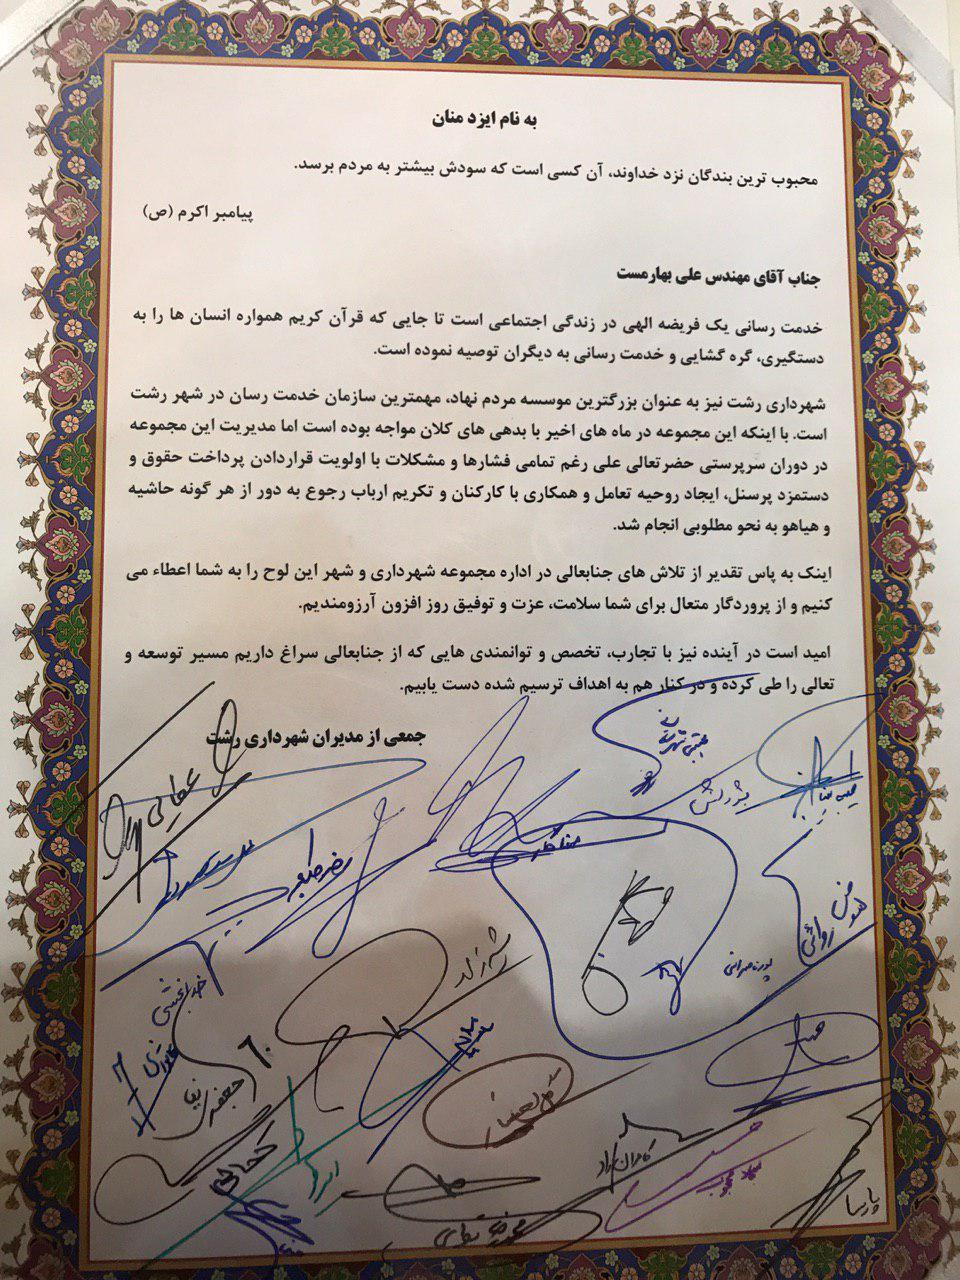 به نام ایزد منان
محبوب ترین بندگان نزد خداوند، آن کسی است که سودش بیشتر به مردم برسد.
پیامبر اکرم (ص)
جناب آقای مهندس علی بهارمست
خدمت رسانی یک فریضه الهی در زندگی اجتماعی است تا جایی که قرآن کریم همواره انسان ها را به
دستگیری، گره گشایی و خدمت رسانی به دیگران توصیه نموده است.
شهرداری رشت نیز به عنوان بزرگترین موسسه مردم نهاد، مهمترین سازمان خدمت رسان در شهر رشت
است. با اینکه این مجموعه در ماه های اخیر با بدهی های کلان مواجه بوده است اما مدیریت این مجموعه
در دوران سرپرستی حضرتعالی علی رغم تمامی فشارها و مشکلات با اولویت قراردادن پرداخت حقوق و
دستمزد پرسنل، ایجاد روحیه تعامل و همکاری با کارکنان و تکریم ارباب رجوع به دور از هر گونه حاشیه
و هیاهو به نحو مطلوبی انجام شد.
اینک به پاس تقدیر از تلاش های جنابعالی در اداره مجموعه شهرداری و شهر این لوح را به شما اعطاء می
کنیم و از پروردگار متعال برای شما سلامت، عزت و توفیق روز افزون آرزومندیم.
امید است در آینده نیز با تجارب، تخصص و توانمندی هایی که از جنابعالی سراغ داریم مسیر توسعه و
تعالی را طی کرده و در کنار هم به اهداف ترسیم شده دست یابیم.
جمعی از مدیران شهرداری رشت
خدابخشی
جعفری نیا
کامران راد
پارسا